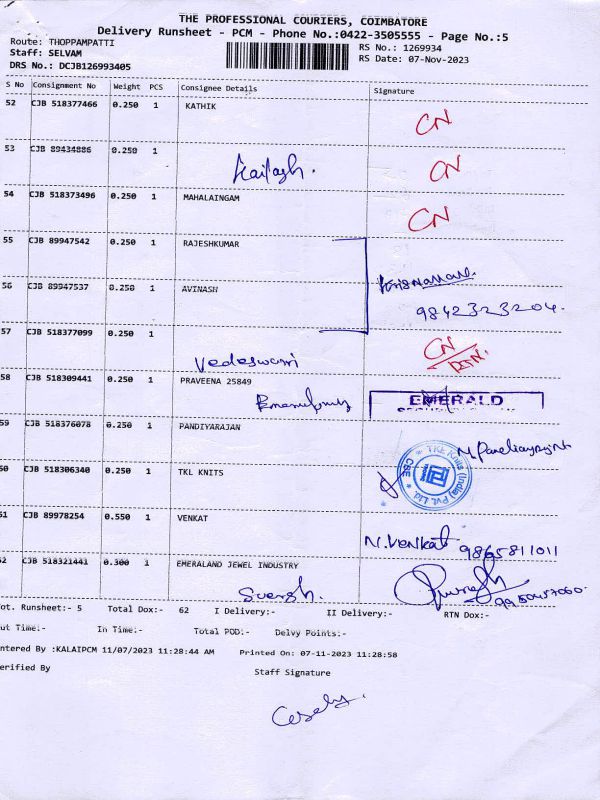 THE PROFESSIONAL COURIERS, COIMBATORE
Delivery Runsheet - PCM - Phone No.:0422-3505555 - Page No.:5
Route: THOPPAMPATTI
RS No.: 1269934
Staff: SELVAM
RS Date: 07-Nov-2023
DRS No.: DCJB126993405
S No Consignment No Weight PCS Consignee Details Signature
52 CJB 518377466 0.250 1 KATHIK CN
53 CJB 89434886 0.250 1 Kailash. CN
54 CJB 518373496 0.250 1 MAHALAINGAM CN
55 CJB 89947542 0.250 1 RAJESHKUMAR
56 CJB 89947537 0.250 1 AVINASH
9842323204.
57 CJB 518377099 0.250 1 CN
Vedeswari RTN.
58 CJB 518309441 0.250 1 PRAVEENA 25849
EMERALD
59 CJB 518376078 0.250 1 PANDIYARAJAN
60 CJB 518306340 0.250 1 TKL KNITS
TKL Knits (India) Pvt. Ltd. * CBE *
61 CJB 89978254 0.550 1 VENKAT
N.Venkat 9865811011
62 CJB 518321441 0.300 1 EMERALAND JEWEL INDUSTRY
Suresh.
Tot. Runsheet:- 5 Total Dox:- 62 I Delivery:- II Delivery:- RTN Dox:-
Out Time:- In Time:- Total POD:- Delvy Points:-
Entered By :KALAIPCM 11/07/2023 11:28:44 AM Printed On: 07-11-2023 11:28:58
Verified By Staff Signature